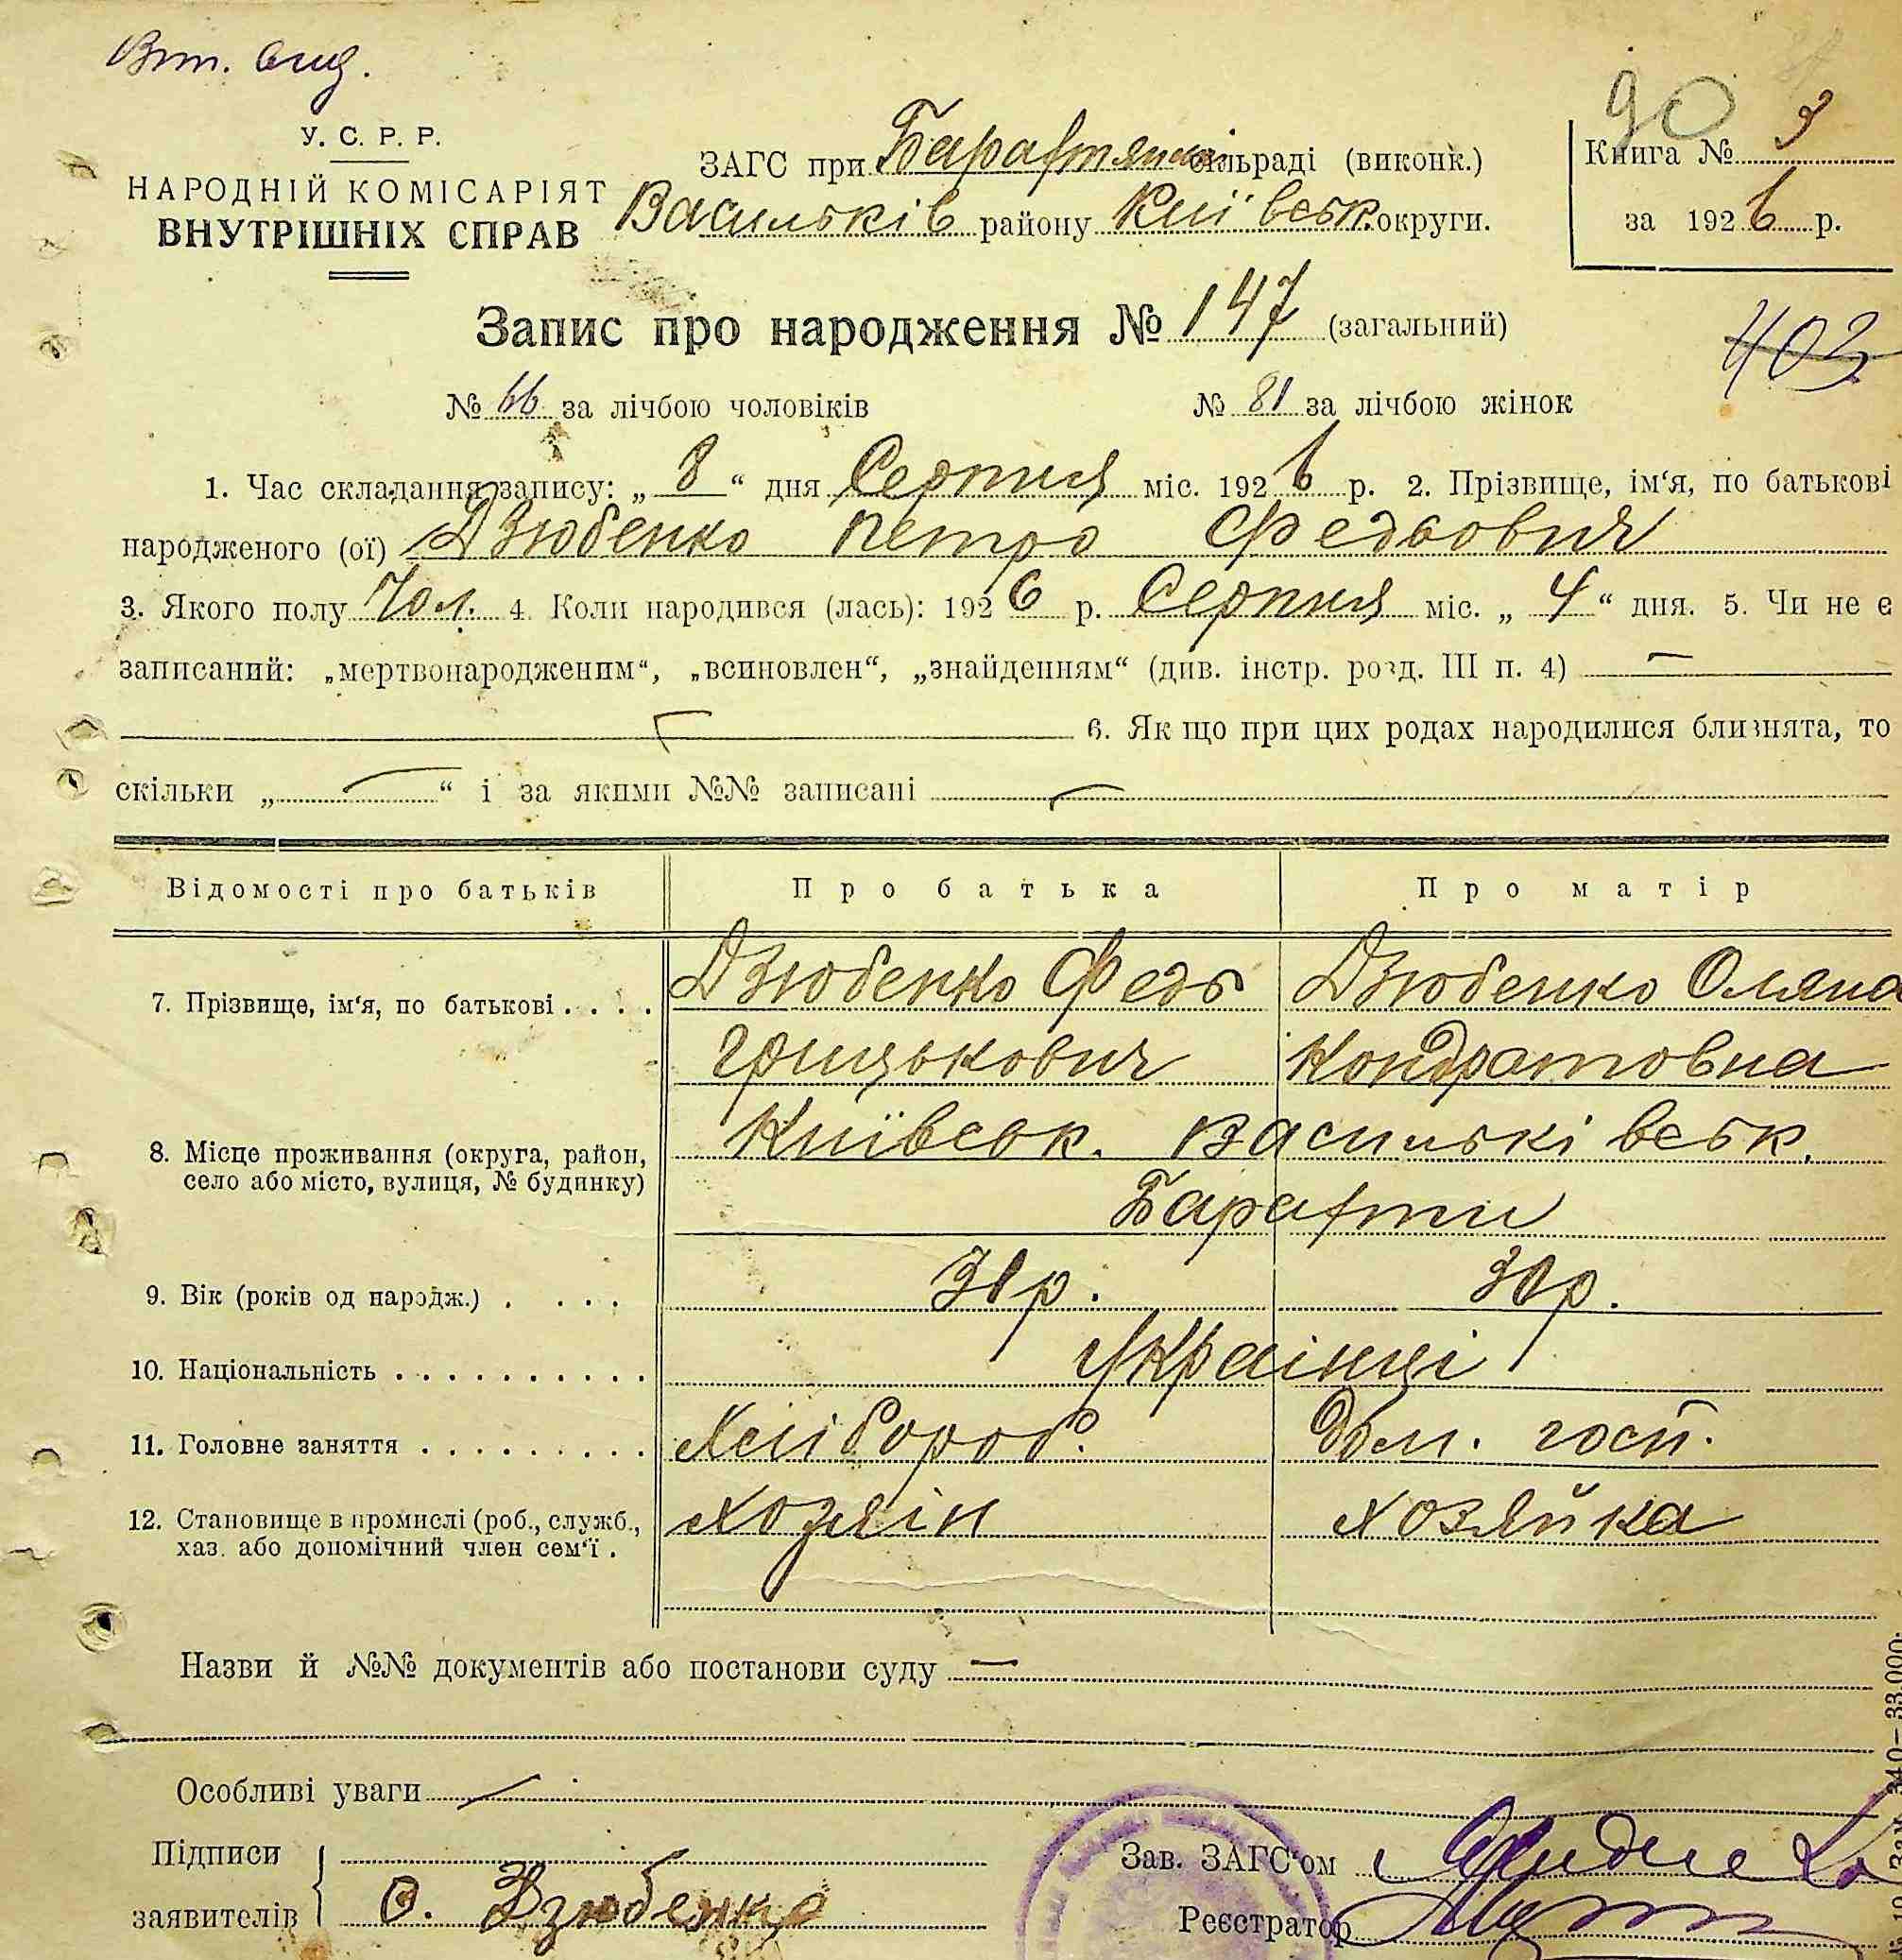 Вт. вид.
90
У. С. Р. Р.
НАРОДНІЙ КОМІСАРІЯТ
ВНУТРІШНІХ СПРАВ
ЗАГС при Барахтянській сільраді (виконк.)
Васильків району Київськ. округи.
Книга № 3
за 1926 р.
Запис про народження № 147 (загальний)
403
№ 66 за лічбою чоловіків № 81 за лічбою жінок
1. Час складання запису: „ 8 “ дня Серпня міс. 1926 р. 2. Прізвище, ім‘я, по батькові
народженого (ої) Дзюбенко Петро Федьович
3. Якого полу Чол. 4. Коли народився (лась): 1926 р. Серпня міс. „ 4 “ дня. 5. Чи не є
записаний: „мертвонародженим“, „всиновлен“, „знайденням“ (див. інстр. розд. III п. 4) —
— 6. Як що при цих родах народилися близнята, то
скільки „ — “ і за якими №№ записані —
Відомості про батьків Про батька Про матір
7. Прізвище, ім‘я, по батькові . . . . Дзюбенко Федь Дзюбенко Оляна
Грицькович Кондратовна
8. Місце проживання (округа, район, Київськ. Васильківськ.
село або місто, вулиця, № будинку) Барахти
9. Вік (років од народж.) . . . . 31 р. 30 р.
10. Національність . . . . . . . . . . Українці
11. Головне заняття . . . . . . . . . Хлібороб. Дом. госп.
12. Становище в промислі (роб., служб., Хозяін Хозяйка
хаз. або допомічний член сем‘ї .
Назви й №№ документів або постанови суду —
Особливі уваги —
Підписи
заявителів О. Дзюбенко
Зав. ЗАГС‘ом
Реєстратор
340—33.000.